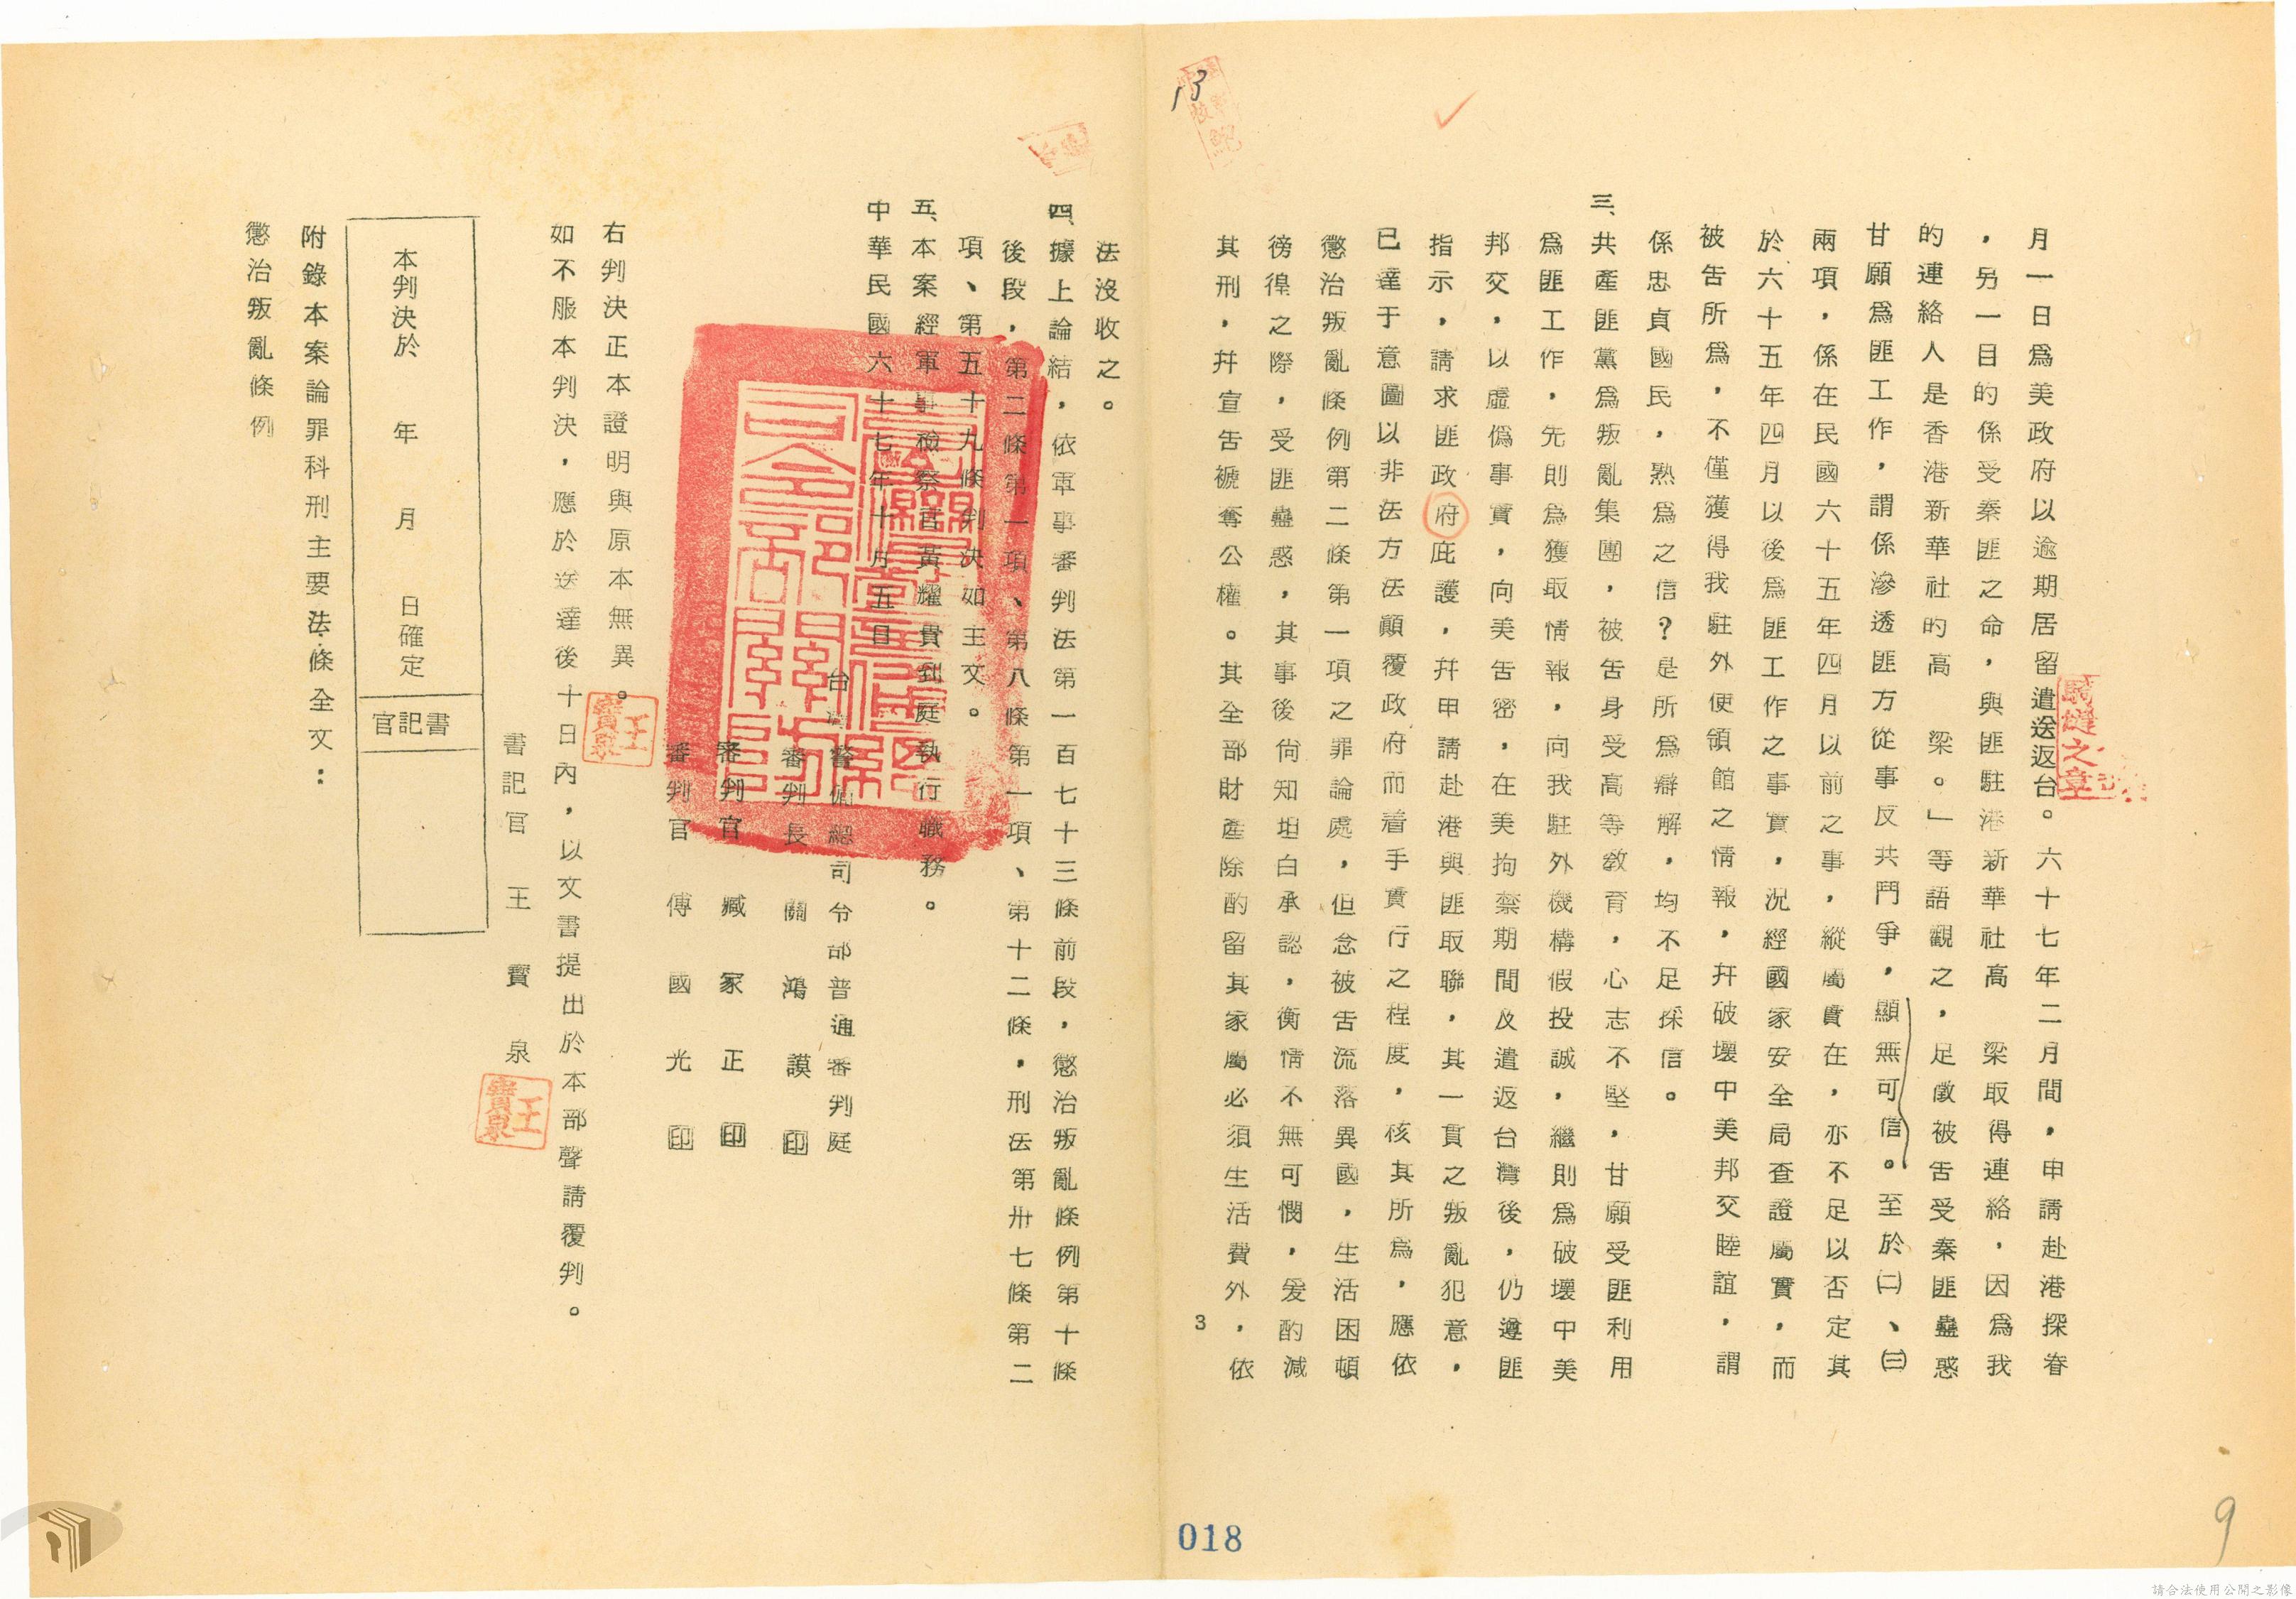 月一日為美政府以逾期居留遣送返台。六十七年二月間，申請赴港探眷
，另一目的係受秦匪之命，與匪駐港新華社高　梁取得連絡，因為我
的連絡人是香港新華社的高　梁。」等語觀之，足徵被告受秦匪蠱惑
甘願為匪工作，謂係滲透匪方從事反共鬥爭，顯無可信。至於㈡、㈢
兩項，係在民國六十五年四月以前之事，縱屬實在，亦不足以否定其
於六十五年四月以後為匪工作之事實，況經國家安全局查證屬實，而
被告所為，不僅獲得我駐外使領館之情報，幷破壞中美邦交睦誼，謂
係忠貞國民，熟為之信？是所為辯解，均不足採信。
三、共產匪黨為叛亂集團，被告身受高等教育，心志不堅，甘願受匪利用
為匪工作，先則為獲取情報，向我駐外機構假投誠，繼則為破壞中美
邦交，以虛偽事實，向美告密，在美拘禁期間及遣返台灣後，仍遵匪
指示，請求匪政府庇護，幷申請赴港與匪取聯，其一貫之叛亂犯意，
已達于意圖以非法方法顛覆政府而着手實行之程度，核其所為，應依
懲治叛亂條例第二條第一項之罪論處，但念被告流落異國，生活困頓
徬徨之際，受匪蠱惑，其事後尙知坦白承認，衡情不無可憫，爰酌減
其刑，幷宣告褫奪公權。其全部財產除酌留其家屬必須生活費外，依
法沒收之。
四、據上論結，依軍事審判法第一百七十三條前段，懲治叛亂條例第十條
後段，第二條第一項、第八條第一項、第十二條，刑法第卅七條第二
項、第五十九條判決如主文。
五、本案經軍事檢察官黃耀貴到庭執行職務。
中華民國六十七年十月五日
台灣警備總司令部普通審判庭
審判長　關　鴻　謨　印
審判官　臧　家　正　印
審判官　傅　國　光　印
右判決正本證明與原本無異。
如不服本判決，應於送達後十日內，以文書提出於本部聲請覆判。
書記官　王　寶　泉
王寶泉
王寶泉
本判決於　年　月　日確定
書記官
附錄本案論罪科刑主要法條全文：
懲治叛亂條例
騎縫之章
13
3
018
9
請合法使用公開之影像